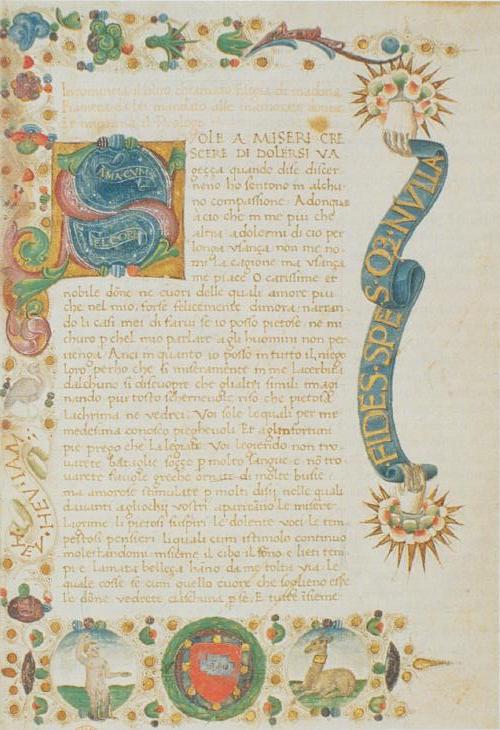 Incomincia il libro chiamato Elegia di madõna
Fiametta da lei mandato alle inamorate donne
Et imprima il Prologo
SOLE A MISERI CRE
SCERE DI DOLERSI VA
gecça quando di se discer
neno ho sentono in alchu
no compassione. Adonque
acio che in me piu che
altra a dolermi di cio per
longa usança non me no
mi la cagione ma usança
me piace O carissime et
nobile dõne ne cuori delle quali amore piu
che nel mio, forse felicemente dimora narran
do li casi mei di farui se io posso pietose ne mi
churo p chel mio parlare agli huomini non per
uenga. Anci in quanto io posso in tutto il niego
loro perho che si miseramente in me lacerbita
dalchuno si discuopre che gli altri simili imagi
nando piu tosto schernevole riso che pietosa
lachrima ne vedrei. Voi sole le quali per me
medesima conosco pieghevoli Et agli infortuni
pie prego che la legiate. Voi legiendo non tro
uarete battaglie soçço p molto sangue. e nõ tro
uarete fauole greche ornate di molte busie
ma amorose stimulate p molti disij nelle quali
dauanti agli ochij vostri apariranno le misere
lagrime li pietosi suspiri le dolente voci le tem
pestosi pensieri li quali cum istimolo continuo
molestandomi insieme il cibo il sõno e lieti tem
pi e lamata belleça hãno da me tolta via. le
quale cosse se cum quello cuore che soglieno esse
le dõne vedrete ciaschuna p se. E tutte insieme
AMA CVM
EL COPE
FIDES·SPES·Q2·NVLLA
HEV·IMA